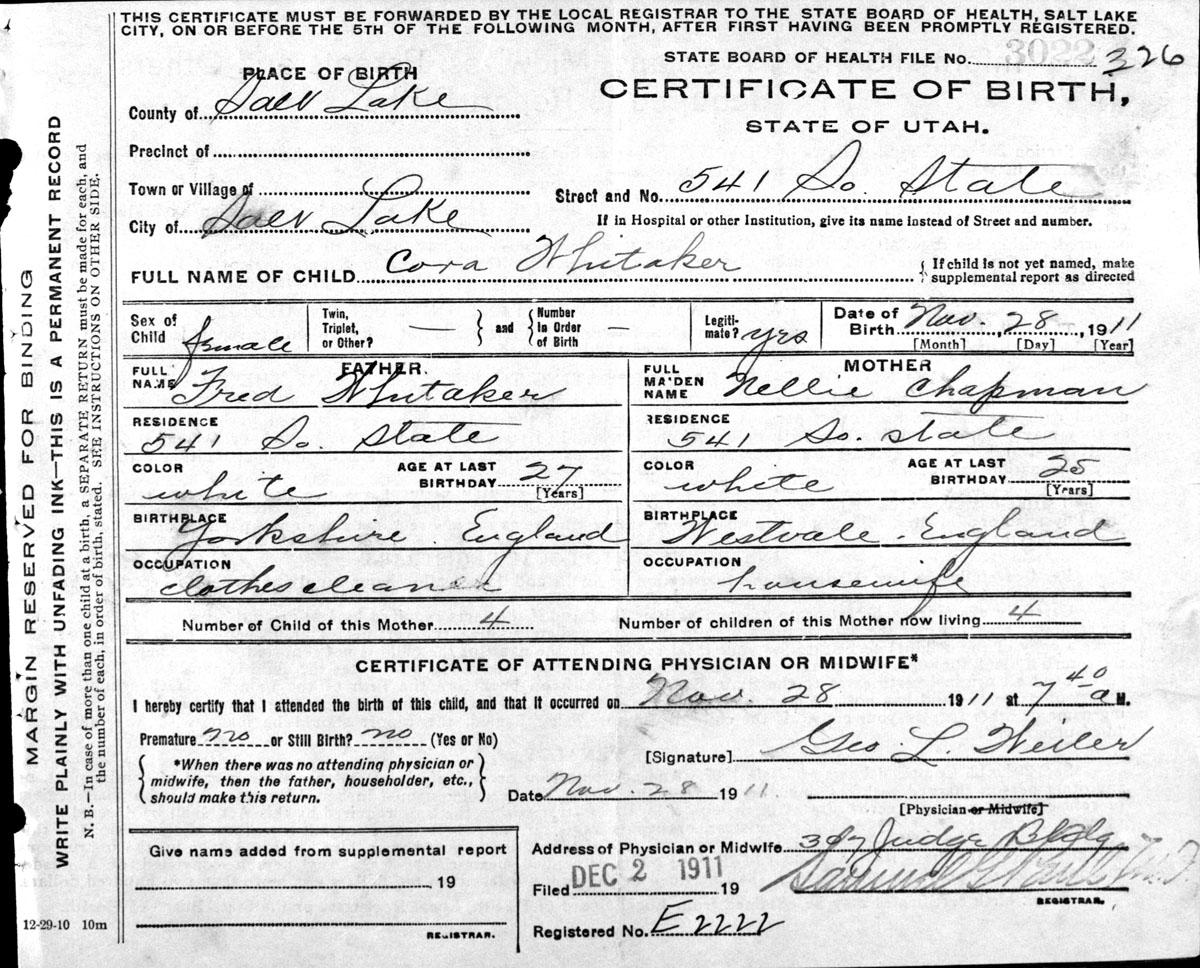 THIS CERTIFICATE MUST BE FORWARDED BY THE LOCAL REGISTRAR TO THE STATE BOARD OF HEALTH, SALT LAKE
CITY, ON OR BEFORE THE 5TH OF THE FOLLOWING MONTH, AFTER FIRST HAVING BEEN PROMPTLY REGISTERED.
STATE BOARD OF HEALTH FILE No. 3022 326
PLACE OF BIRTH
CERTIFICATE OF BIRTH,
STATE OF UTAH.
County of Salt Lake
Precinct of
Town or Village of
Street and No. 541 So. State
City of Salt Lake
If in Hospital or other Institution, give its name instead of Street and number.
FULL NAME OF CHILD Cora Whitaker
If child is not yet named, make
supplemental report as directed
Sex of Child female
Twin, Triplet, or Other? —
and
Number in Order of Birth —
Legiti-mate? yes
Date of Birth Nov. 28 1911
[Month] [Day] [Year]
FATHER.
FULL NAME Fred Whitaker
RESIDENCE
541 So State
COLOR
white
AGE AT LAST BIRTHDAY 27
[Years]
BIRTHPLACE
Yorkshire. England
OCCUPATION
clothes cleaner
MOTHER
FULL MAIDEN NAME Nellie Chapman
RESIDENCE
541 So. State
COLOR
white
AGE AT LAST BIRTHDAY 25
[Years]
BIRTHPLACE
Westvale. England
OCCUPATION
housewife
Number of Child of this Mother 4
Number of children of this Mother now living 4
CERTIFICATE OF ATTENDING PHYSICIAN OR MIDWIFE*
I hereby certify that I attended the birth of this child, and that it occurred on Nov. 28 1911 at 7 40 a M.
Premature no or Still Birth? no (Yes or No)
[Signature] Geo L. Weiler
*When there was no attending physician or
midwife, then the father, householder, etc.,
should make this return.
Date Nov. 28 1911.
[Physician or Midwife]
Give name added from supplemental report
19
REGISTRAR.
Address of Physician or Midwife Judge Bldg
Filed DEC 2 1911 19
REGISTRAR.
Registered No. E2222
12-29-10 10m
MARGIN RESERVED FOR BINDING
WRITE PLAINLY WITH UNFADING INK—THIS IS A PERMANENT RECORD
N. B.—In case of more than one child at a birth, a SEPARATE RETURN must be made for each, and
the number of each, in order of birth, stated. SEE INSTRUCTIONS ON OTHER SIDE.